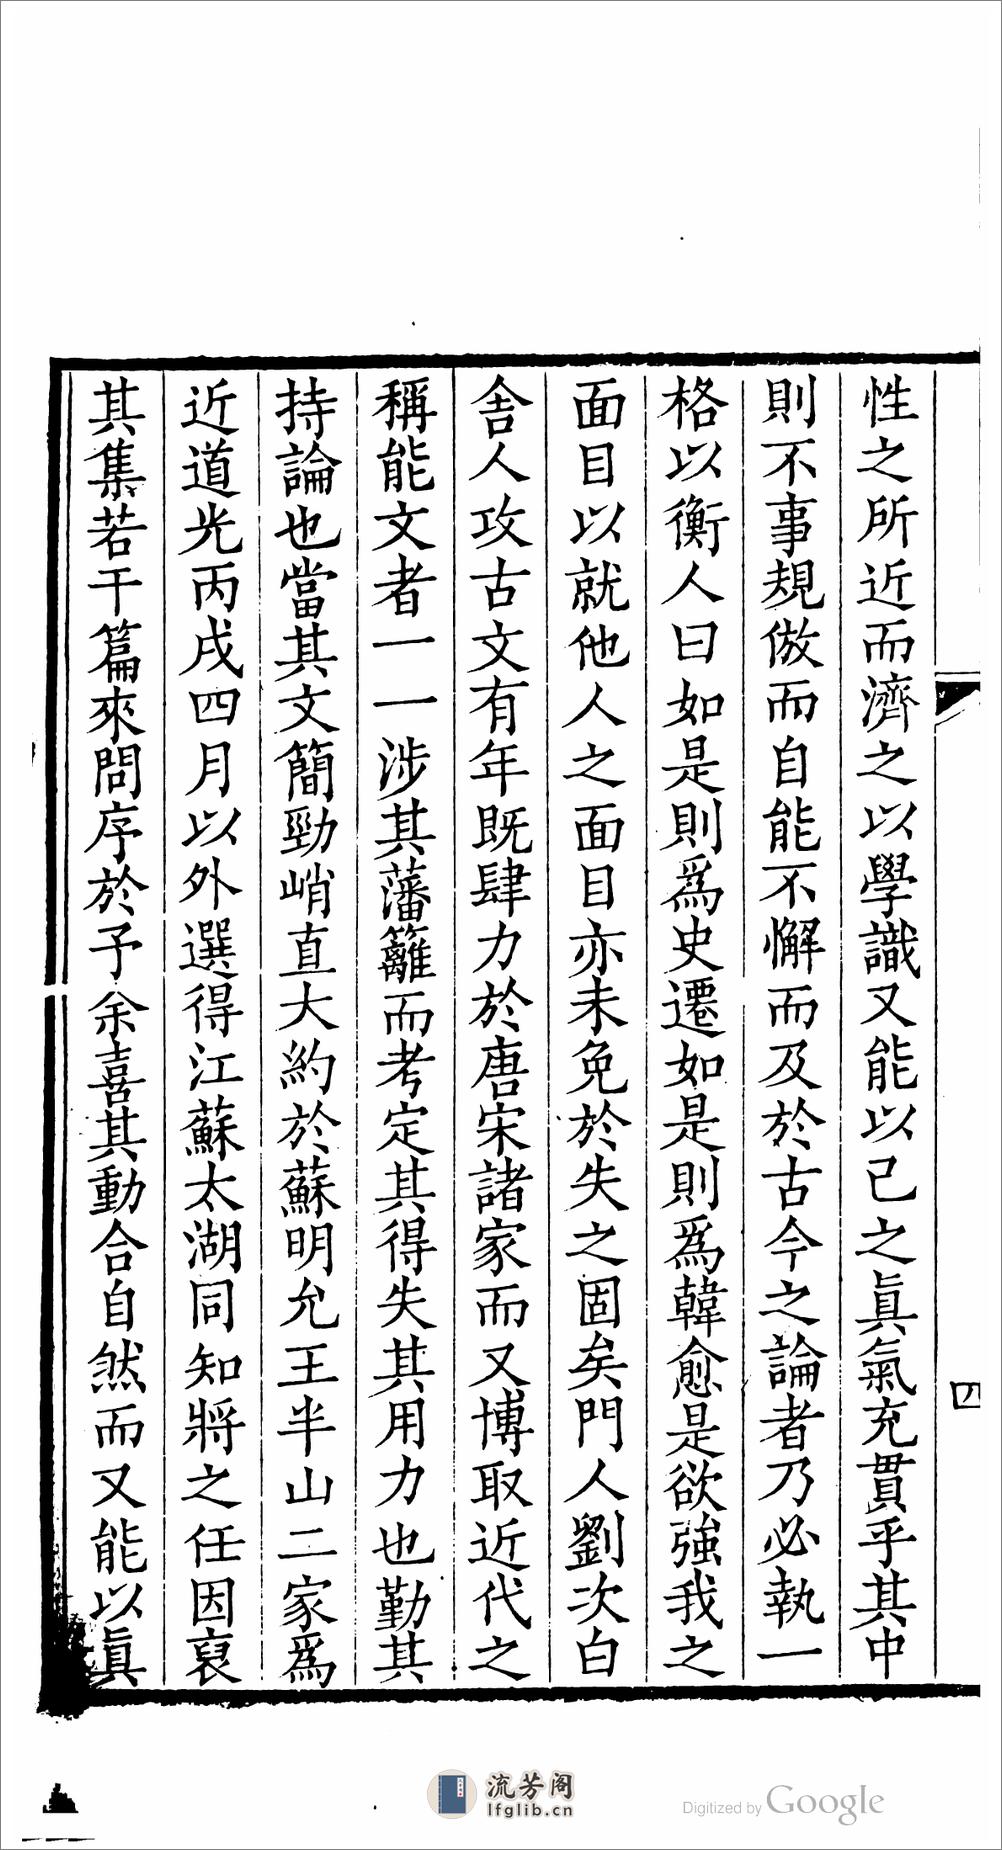 性之所近而濟之以學識又能以己之眞氣充貫乎其中
則不事規倣而自能不懈而及於古今之論者乃必執一
格以衡人曰如是則爲史遷如是則爲韓愈是欲強我之
面目以就他人之面目亦未免於失之固矣門人劉次白
舍人攻古文有年既肆力於唐宋諸家而又博取近代之
稱能文者一一涉其藩籬而考定其得失其用力也勤其
持論也當其文簡勁峭直大約於蘇明允王半山二家爲
近道光丙戌四月以外選得江蘇太湖同知將之任因裒
其集若干篇來問序於予余喜其動合自然而又能以眞
四
流芳阁
lfglib.cn
Digitized by Google